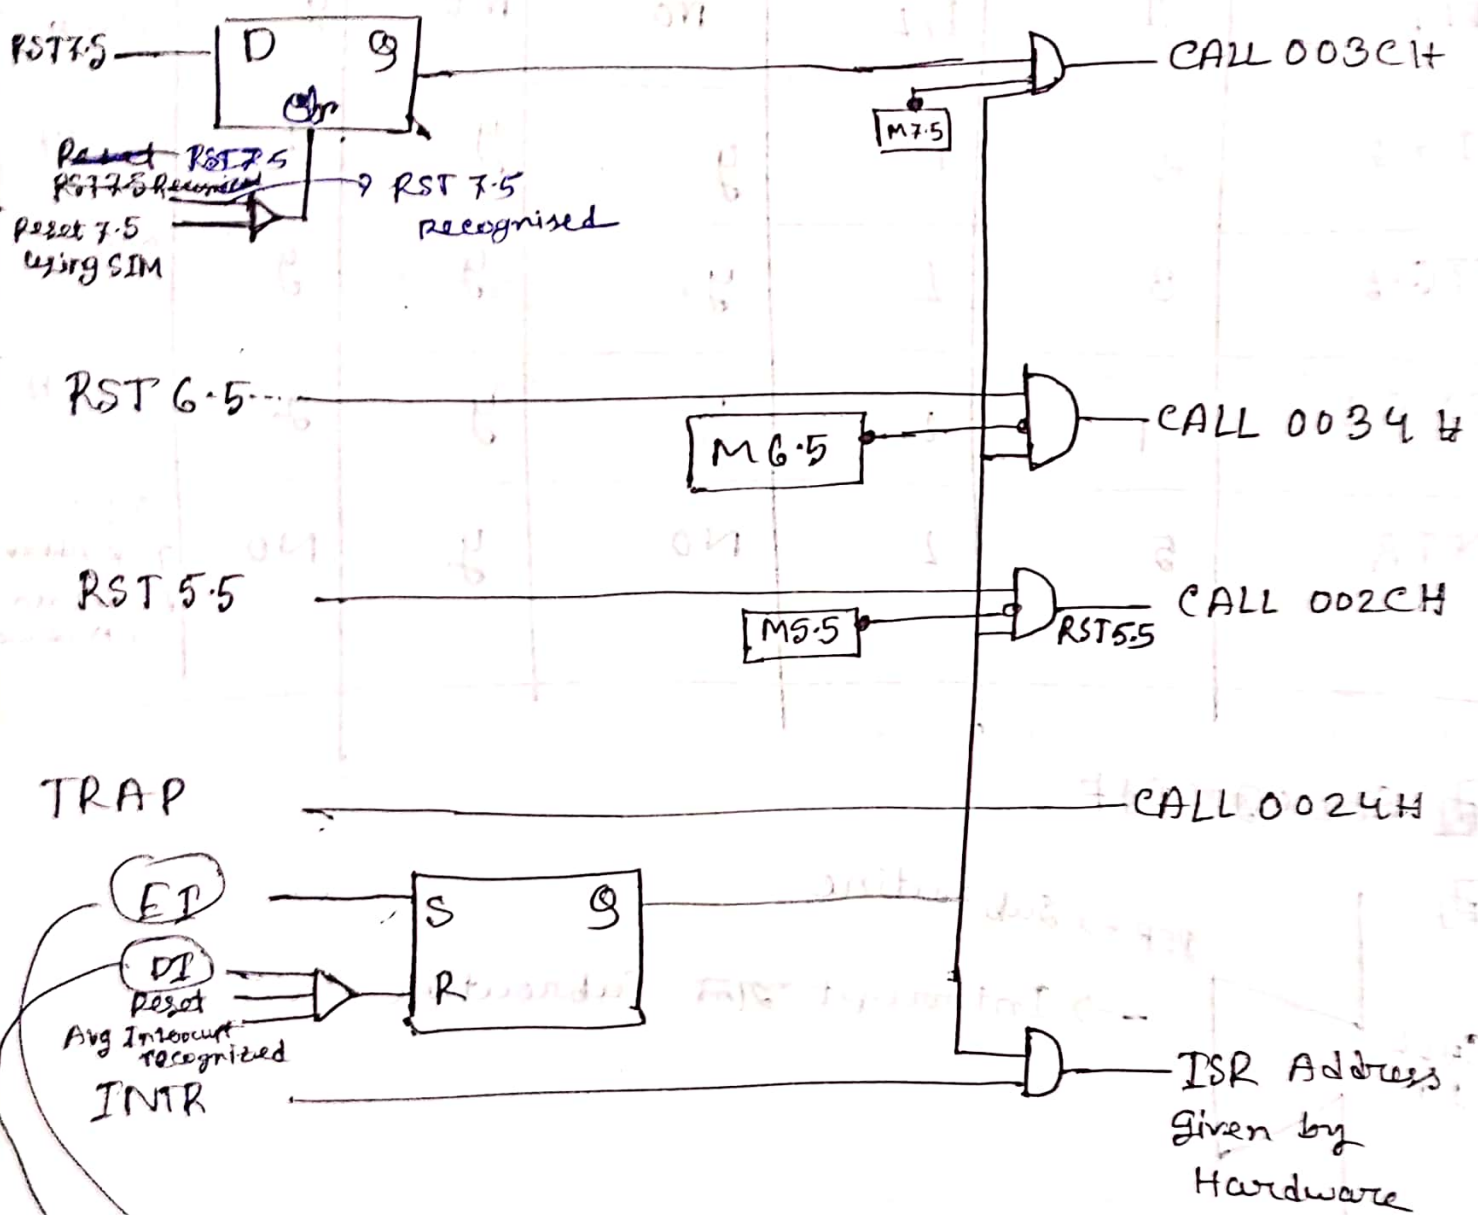 RST7.5
D Q
CALL 003CH
M7.5
RST7.5
RST 7.5
recognised
Reset 7.5
using SIM
RST 6.5
M6.5
CALL 0034H
RST 5.5
M5.5
RST5.5
CALL 002CH
TRAP
CALL 0024H
EI
S Q
DI
R
Reset
Avg Interrupt
recognized
INTR
ISR Address
Given by
Hardware